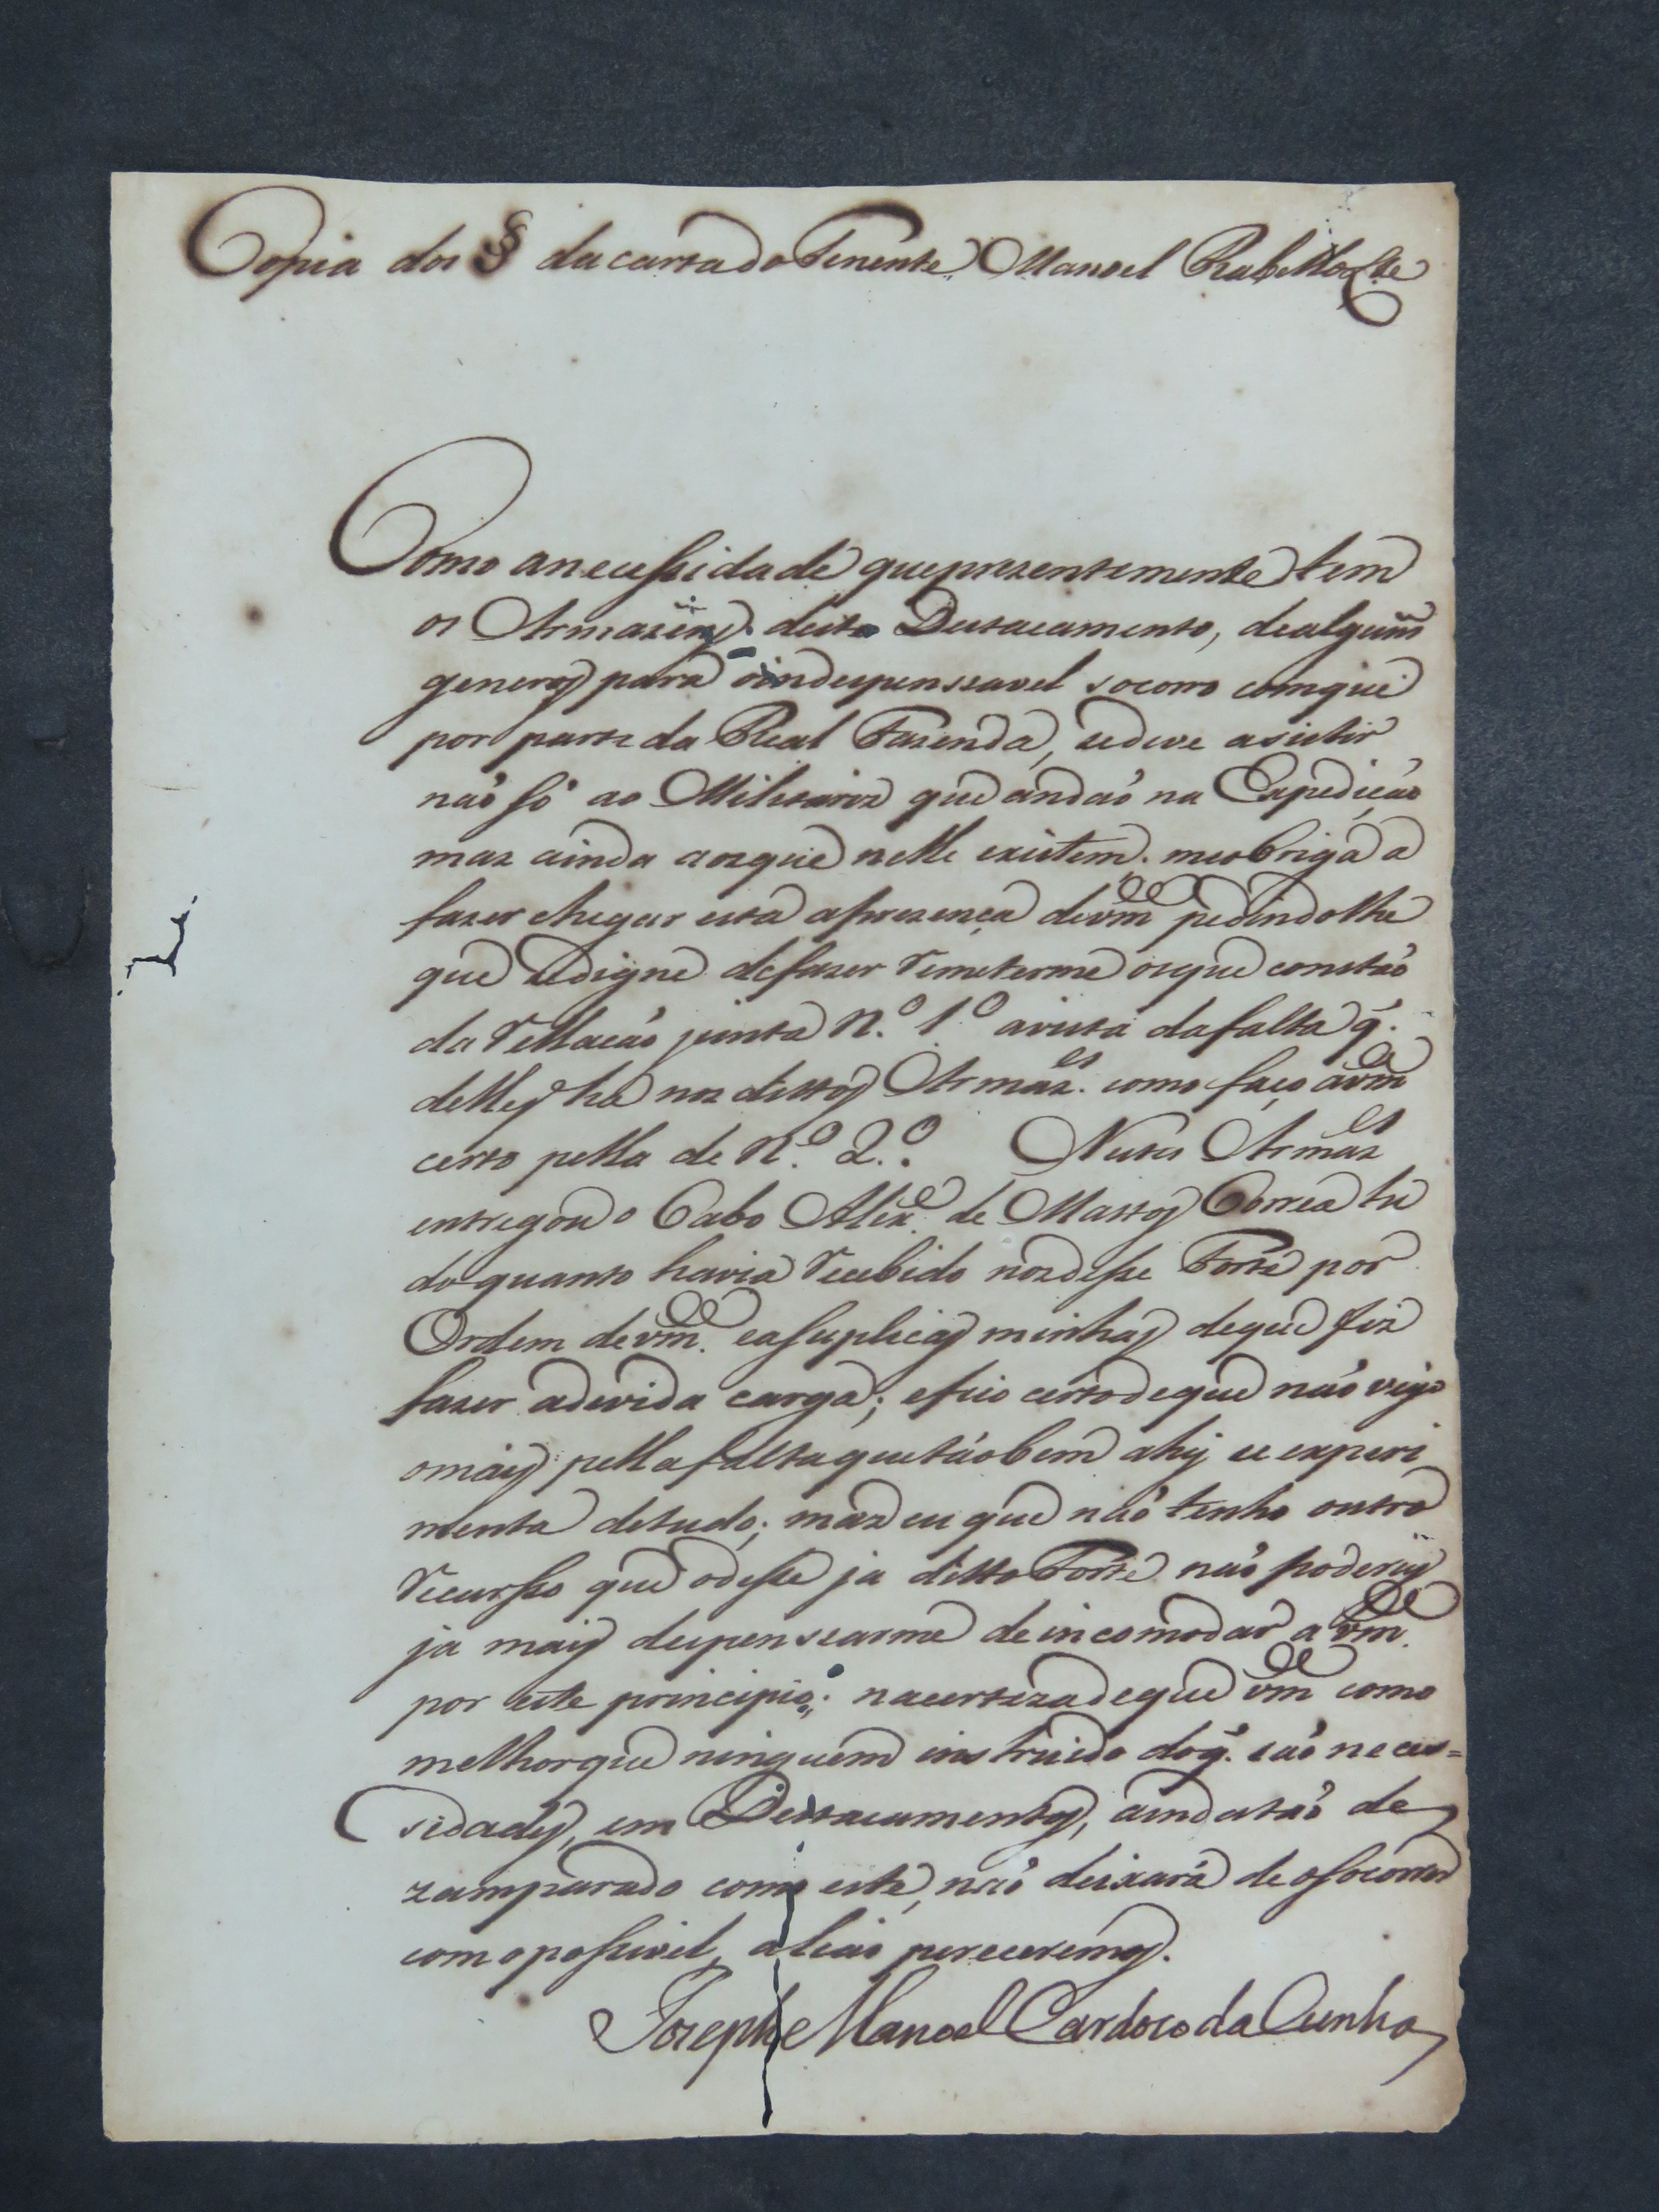 Copia dos § da carta do Tenente Manoel Rabello &e
Como anecessidade quepresentemente tem
os Armazẽns deste Destacamento, dealguns
generos para oindespenssavel socorro comque
por parte da Real Fazenda, sedeve asistir
não só ao Militares que andão na Expedição
mas ainda aosque nelle existem. meobriga a
fazer chegar esta apresença devm.ce pedindolhe
que sedigne defazer remeterme osque constão
da rellação junta N.º 1.º avista dafalta q̃.
delles ha nos dittos Armaz.es como faço avm.ce
certo pella de N.º 2.º Nestes Armaz.es
entregou o Cabo Alex.e de Mattos Correa tu
do quanto havia recebido nosdesse Forte por
Ordem devm.ce easuplicas minhas deque fiz
fazer adevida carga; efico certodeque não veyo
omais pellafaltaquetãobem ahy se experi
menta detudo; mas eu que não tenho outro
recursso que odesse ja ditto Forte não poderey
ja mais despenssarme deincomodar a vm.ce
por este principio; nacertezadeque vm.ce como
melhorque ninguem instruido doq̃. são neces=
sidades, em Destacamentos, aindatão de
zamparado como este, não deixará de osocorrer
com opossivel, alias pereceremos.
Jozeph Manoel Cardozo da Cunha